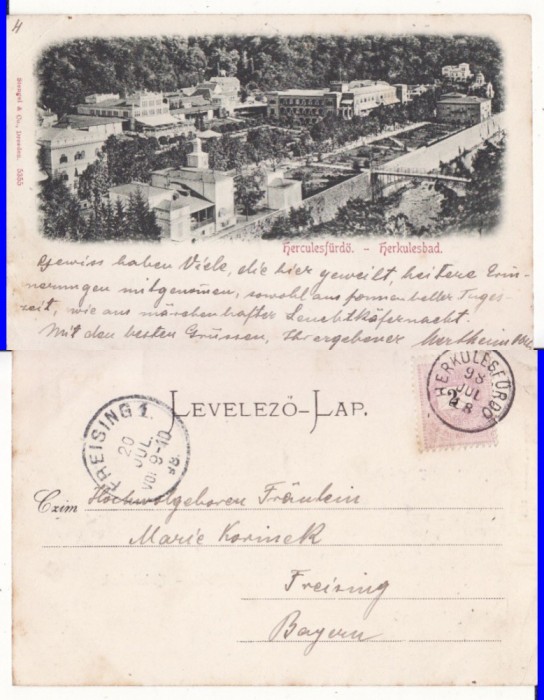 4
Stengel & Co., Dresden. 5355
Herculesfürdö. - Herkulesbad.
Gewiss haben Viele, die hier geweilt, heitere Erin-
nerungen mitgenom̅en, sowohl aus sonnenheller Tages-
zeit, wie aus märchenhafter Leuchtkäfernacht.
Mit den besten Grüssen, Ihr ergebener
HERKULESFÜRDŐ
98
JUL
18
LEVELEZŐ-LAP.
FREISING 1.
20
JUL.
VOR 9-10
98.
Czim Hochwolgeboren Fräulein
Marie Korinek
Freising
Bayern